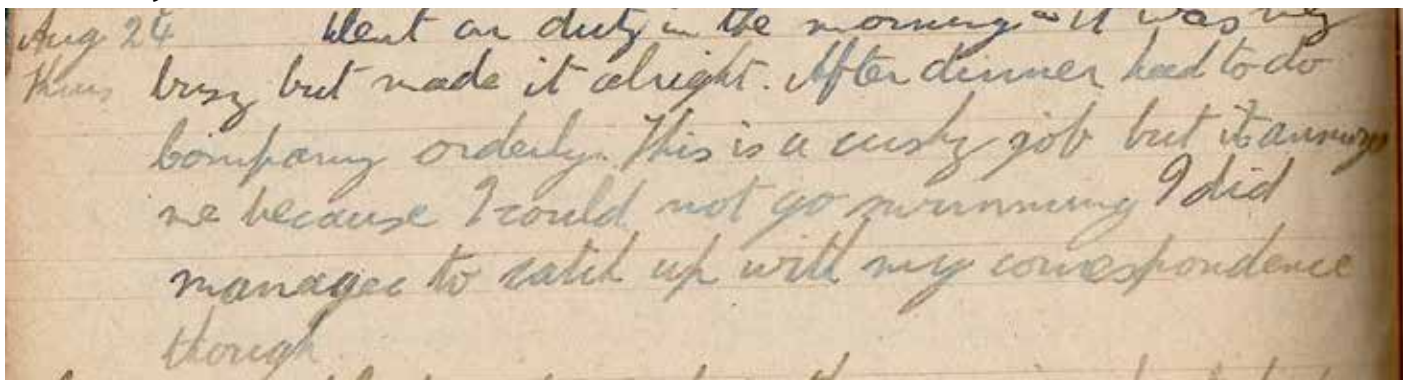 Aug 24 Went on duty in the morning & it was very
Thurs busy but made it alright. After dinner had to do
Company orderly. This is a cushy job but it annoys
me because I could not go swimming I did
manage to catch up with my correspondence
though